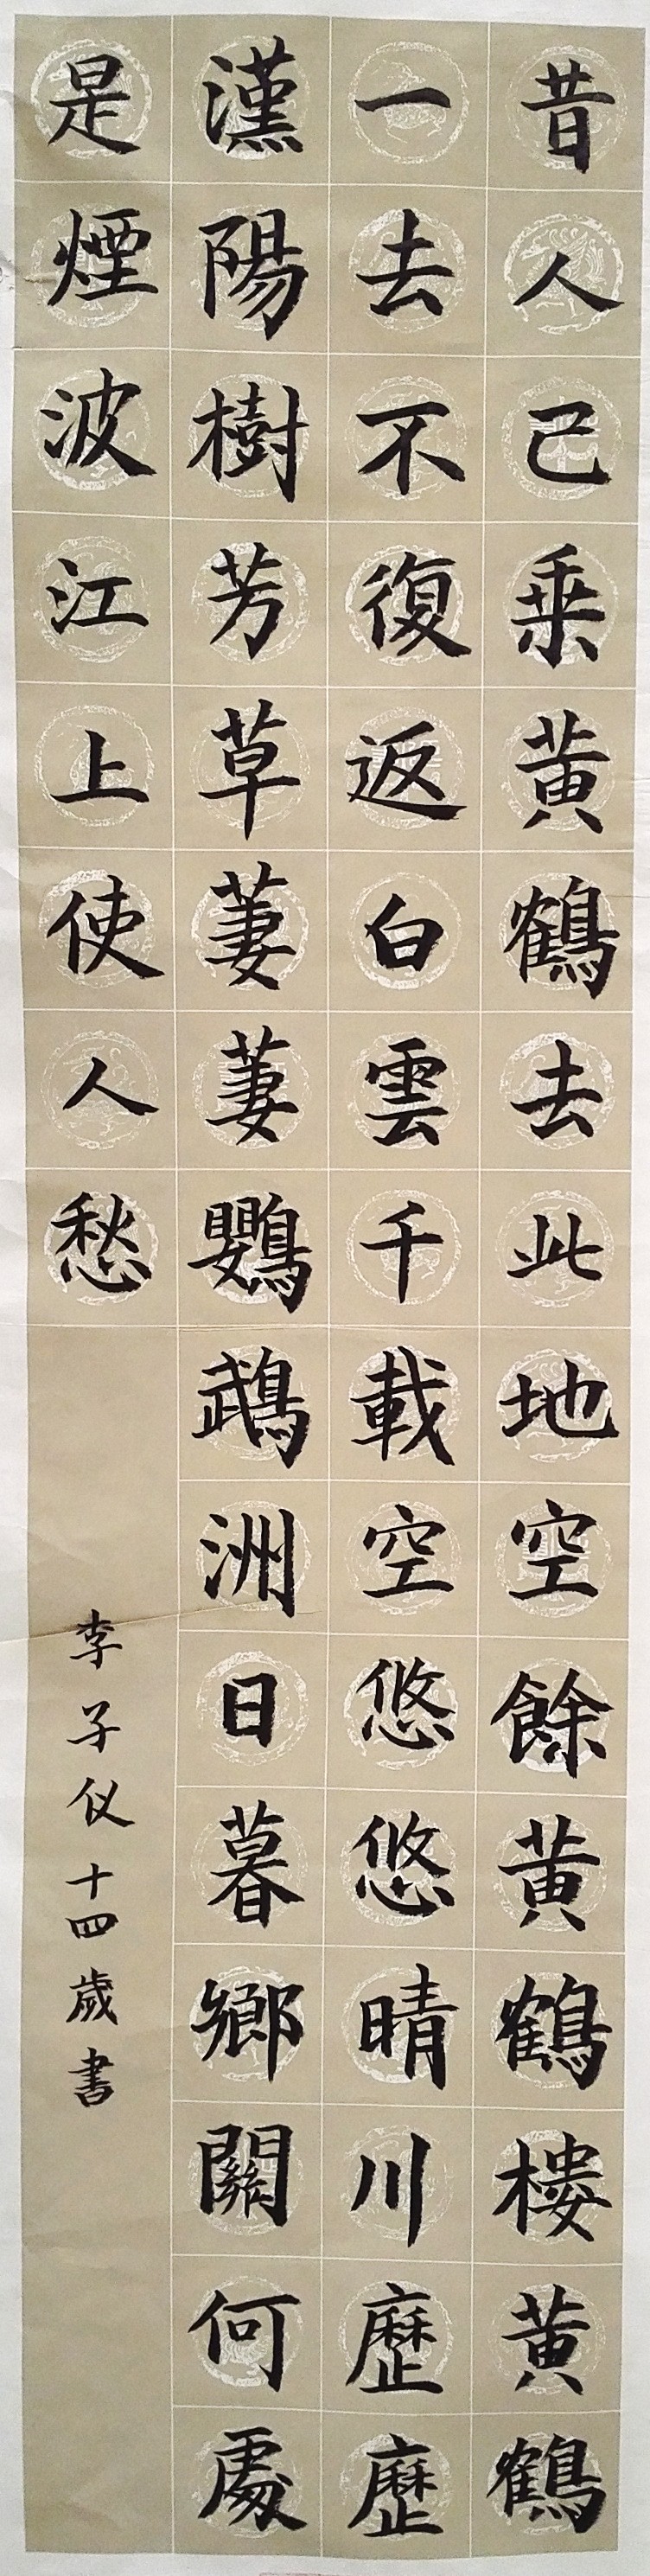 昔人己乗黄鶴去此地空餘黄鶴樓黄鶴
一去不復返白雲千載空悠悠晴川歷歷
漢陽樹芳草萋萋鸚鵡洲日暮鄉關何處
是煙波江上使人愁
李子仪十四歲書